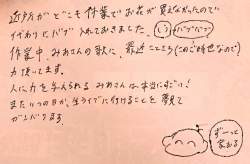 近所がどこも休業でお花が買えなかったので
代わりにバブ入れておきました。いうバブバブ
作業中、みおさんの歌に、最近こころ(このご時世なので)
力頂いてます。
人に力を与えられるみおさんは本当にすごい!
またいつの日か、生ライブに行けることを夢見て
ガンバります。
ずーっと
家おる